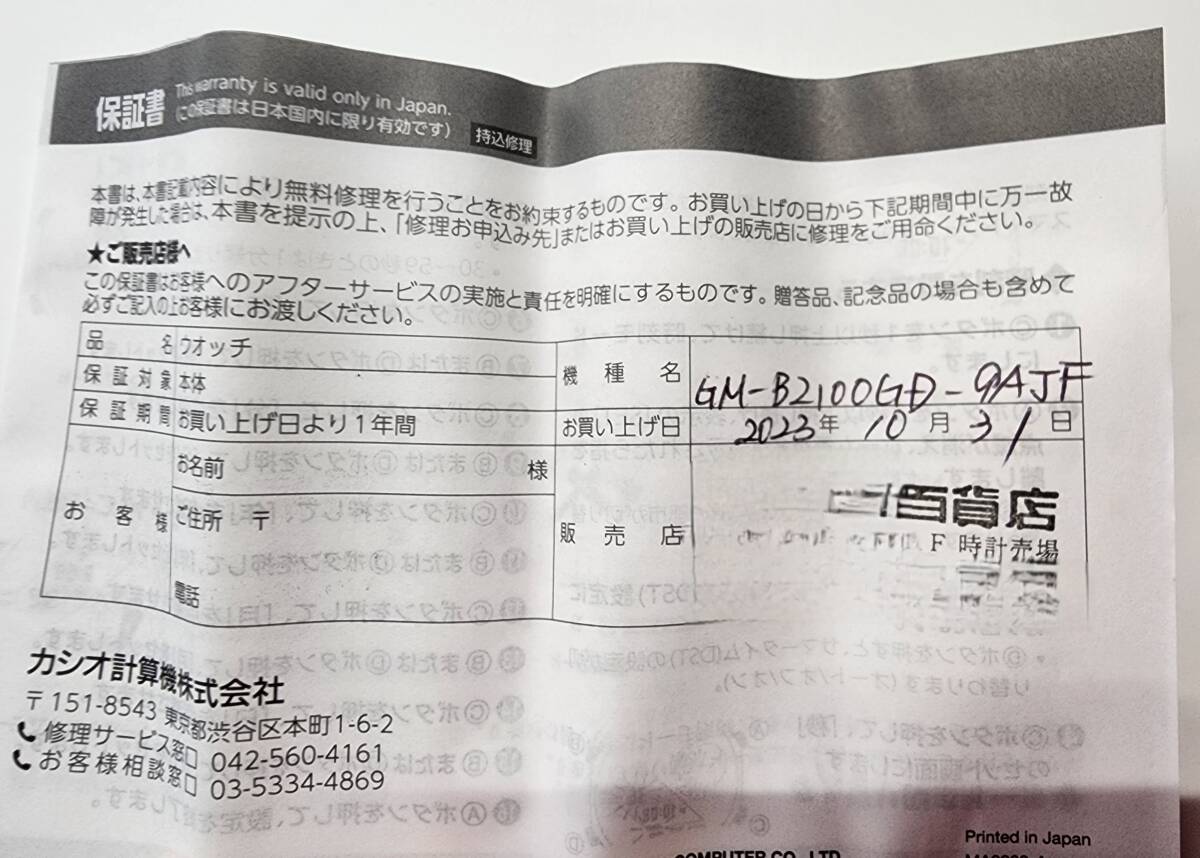 保証書
This warranty is valid only in Japan.
(この保証書は日本国内に限り有効です)
持込修理
本書は、本書記載内容により無料修理を行うことをお約束するものです。お買い上げの日から下記期間中に万一故
障が発生した場合は、本書を提示の上、「修理お申込み先」またはお買い上げの販売店に修理をご用命ください。
★ご販売店様へ
この保証書はお客様へのアフターサービスの実施と責任を明確にするものです。贈答品、記念品の場合も含めて
必ずご記入の上お客様にお渡しください。
品名 ウオッチ
保証対象 本体
機種名 GM-B2100GD-9AJF
保証期間 お買い上げ日より1年間
お買い上げ日 2023年 10月 31日
お客様
お名前 様
ご住所 〒
電話
販売店
百貨店
F 時計売場
カシオ計算機株式会社
〒151-8543 東京都渋谷区本町1-6-2
修理サービス窓口 042-560-4161
お客様相談窓口 03-5334-4869
Printed in Japan
COMPUTER CO., LTD.